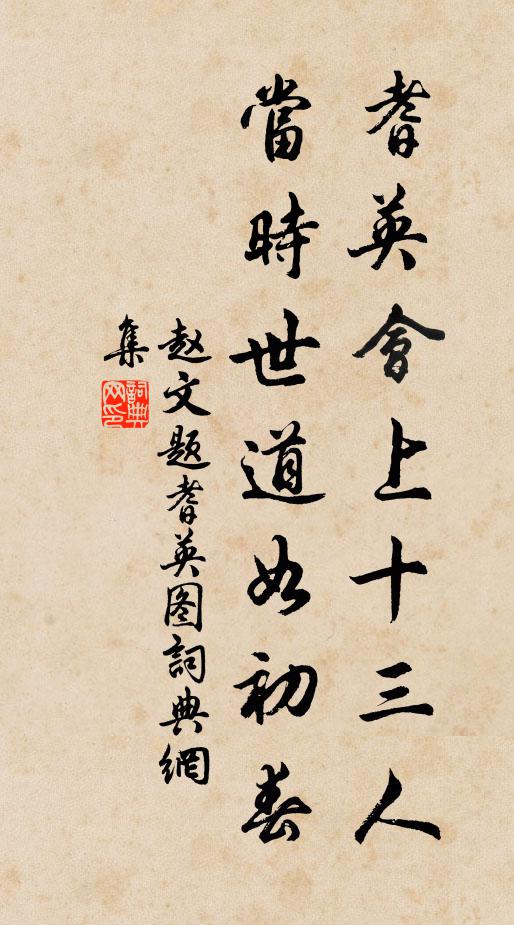 耆英會上十三人
當時世道如初春
赵文题耆英图詞典網
集
詞典
网印